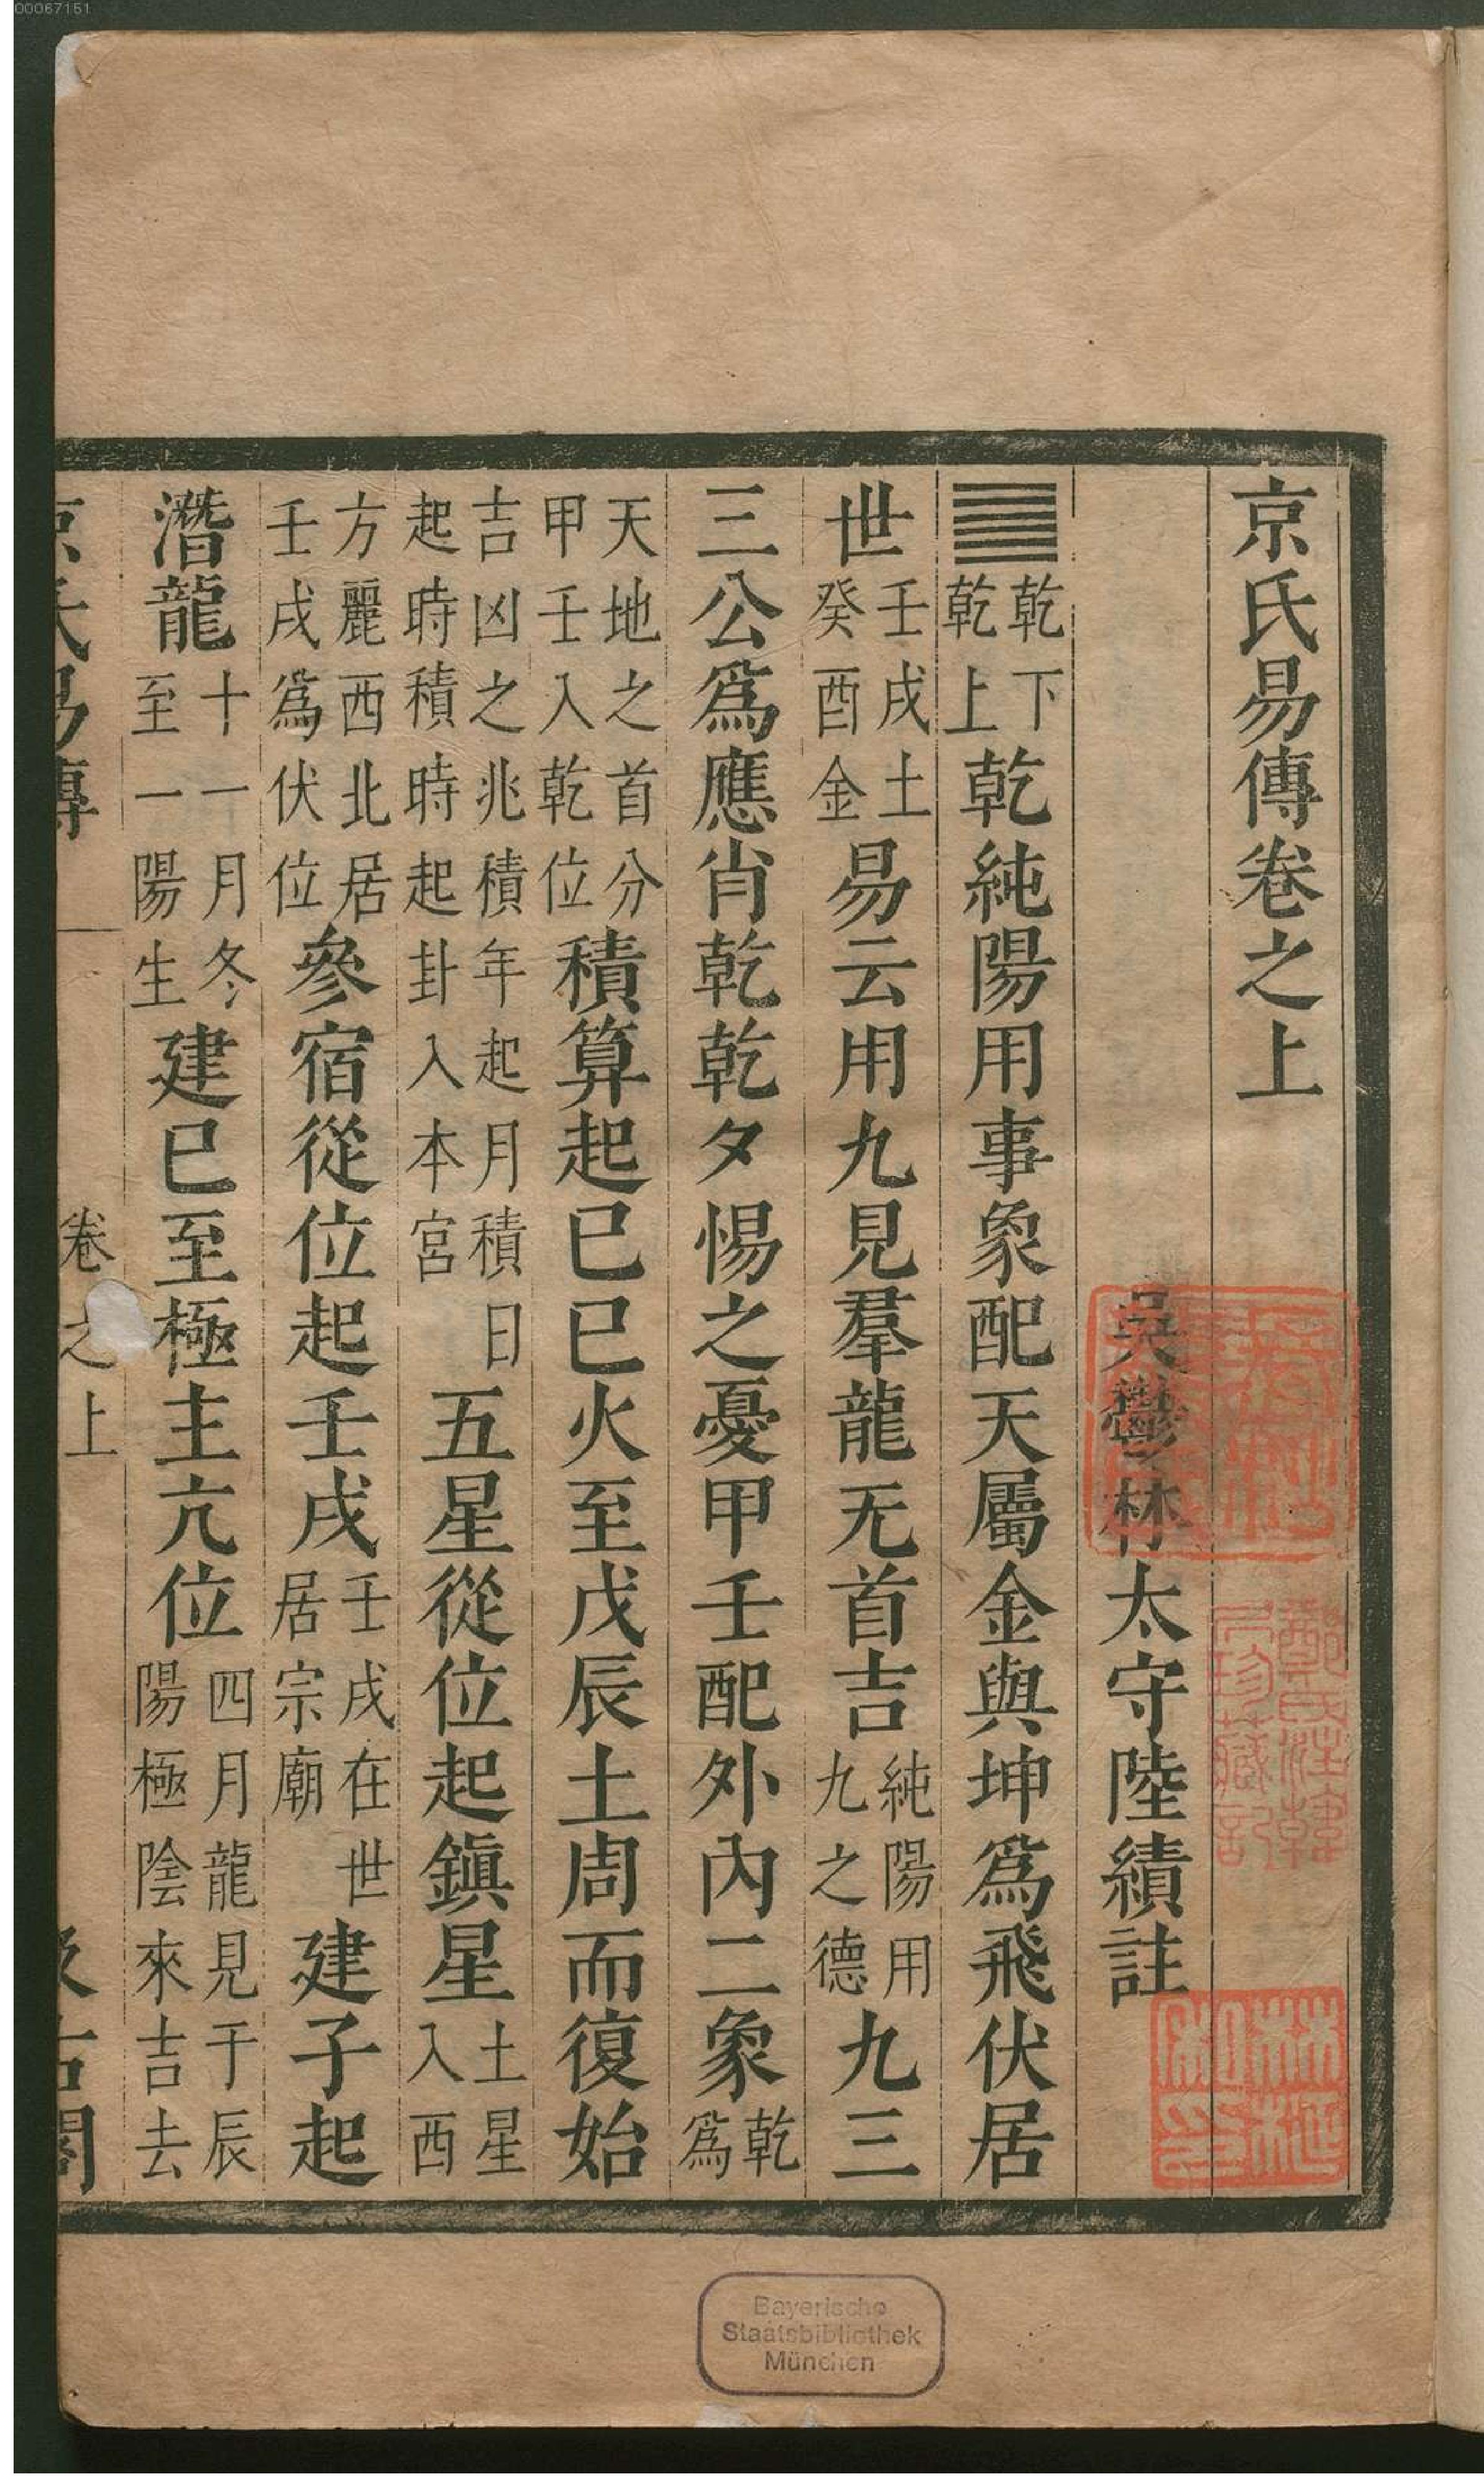 00067151
京氏易傳卷之上
吳鬱林太守陸績註
䷀乾下乾上乾純陽用事象配天屬金與坤爲飛伏居
世壬戌土癸酉金易云用九見羣龍无首吉純陽用九之德九三
三公爲應肖乾乾夕惕之憂甲壬配外內二象乾爲
天地之首分甲壬入乾位積算起巳巳火至戊辰土周而復始
吉凶之兆積年起月積日起時積時起卦入本宮五星從位起鎭星土星入西
方麗西北居壬戌爲伏位參宿從位起壬戌壬戌在世居宗廟建子起
潛龍十一月冬至一陽生建巳至極主亢位四月龍見于辰陽極陰來吉去
京氏易傳
卷之上
汲古閣
林
印
Bayerische
Staatsbibliothek
München